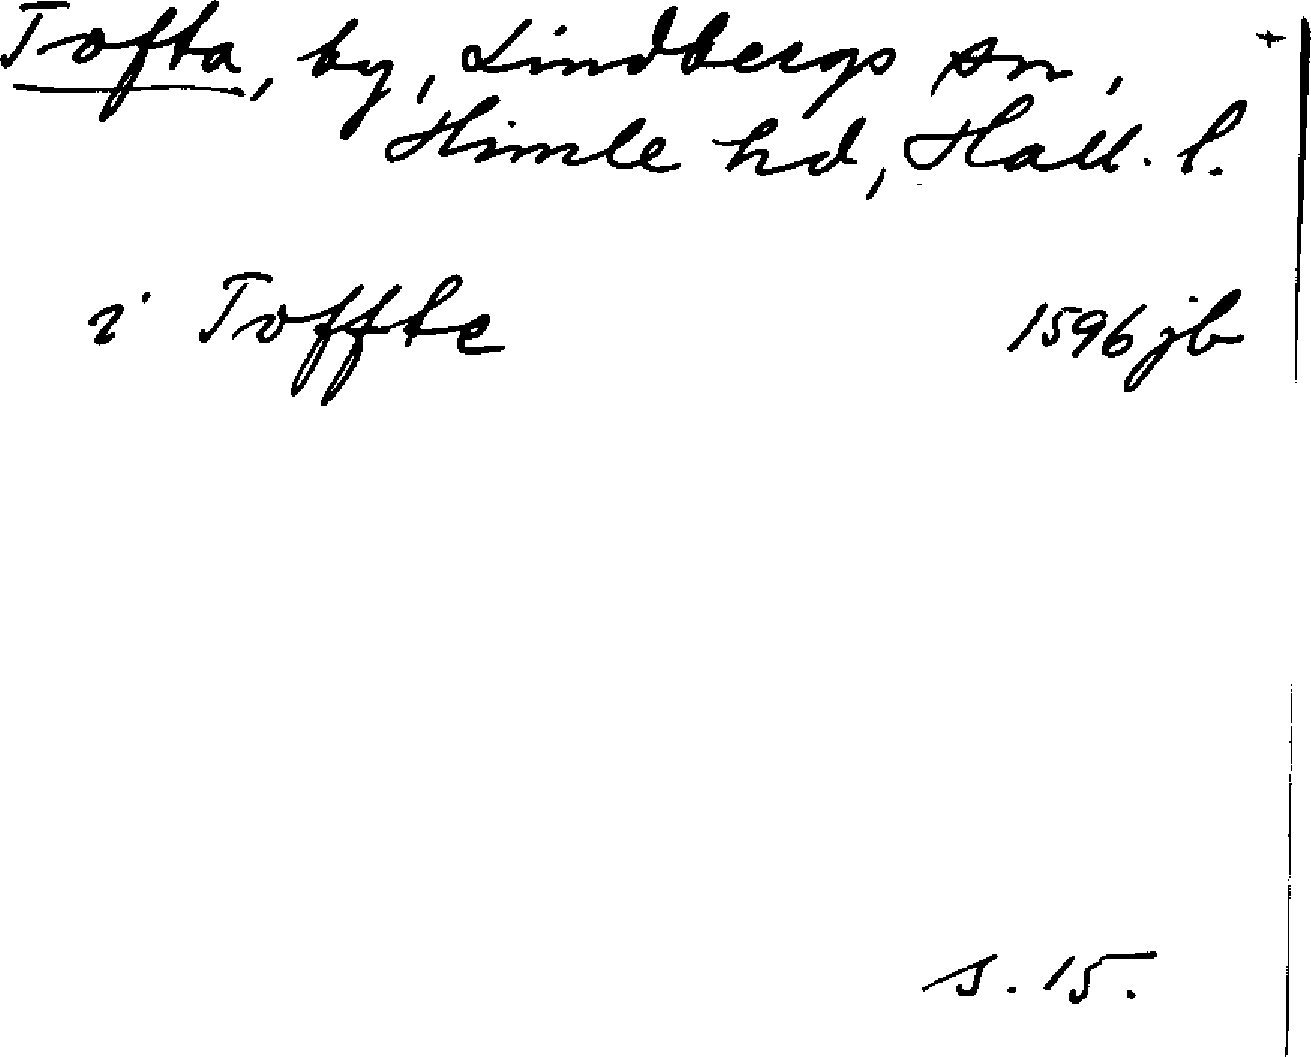 Tofta, by, Lindbergs sn, +
Himle hd, Hall. l.
i Toffte 1596 jb
s. 15.